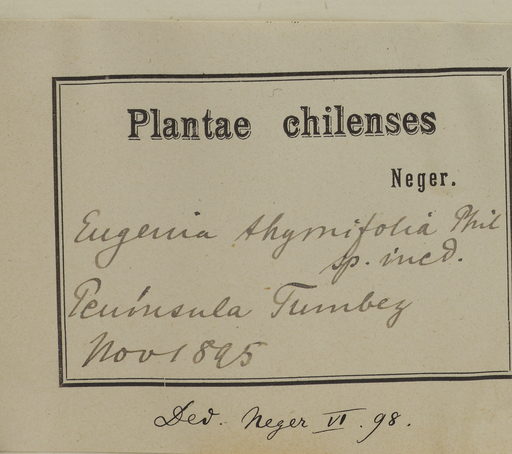 Plantae chilenses
Neger.
Eugenia thymifolia Phil
sp. ined.
Península Tumbez
Nov 1895
Ded. Neger VI. 98.